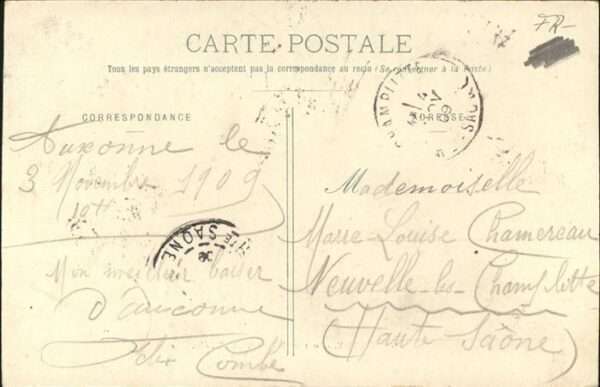 FR-
CARTE POSTALE
Tous les pays étrangers n'acceptent pas la correspondance au recto (Se renseigner à la Poste)
CORRESPONDANCE
ADRESSE
Auxonne le
3 Novembre 1909
10H
Mon meilleur baiser
d'auxonne
Félix Combe
Mademoiselle
Marie-Louise Chamereau
Neuvelle-les-Champlitte
(Haute Saône)
CHAMPLITTE
Hte SAONE